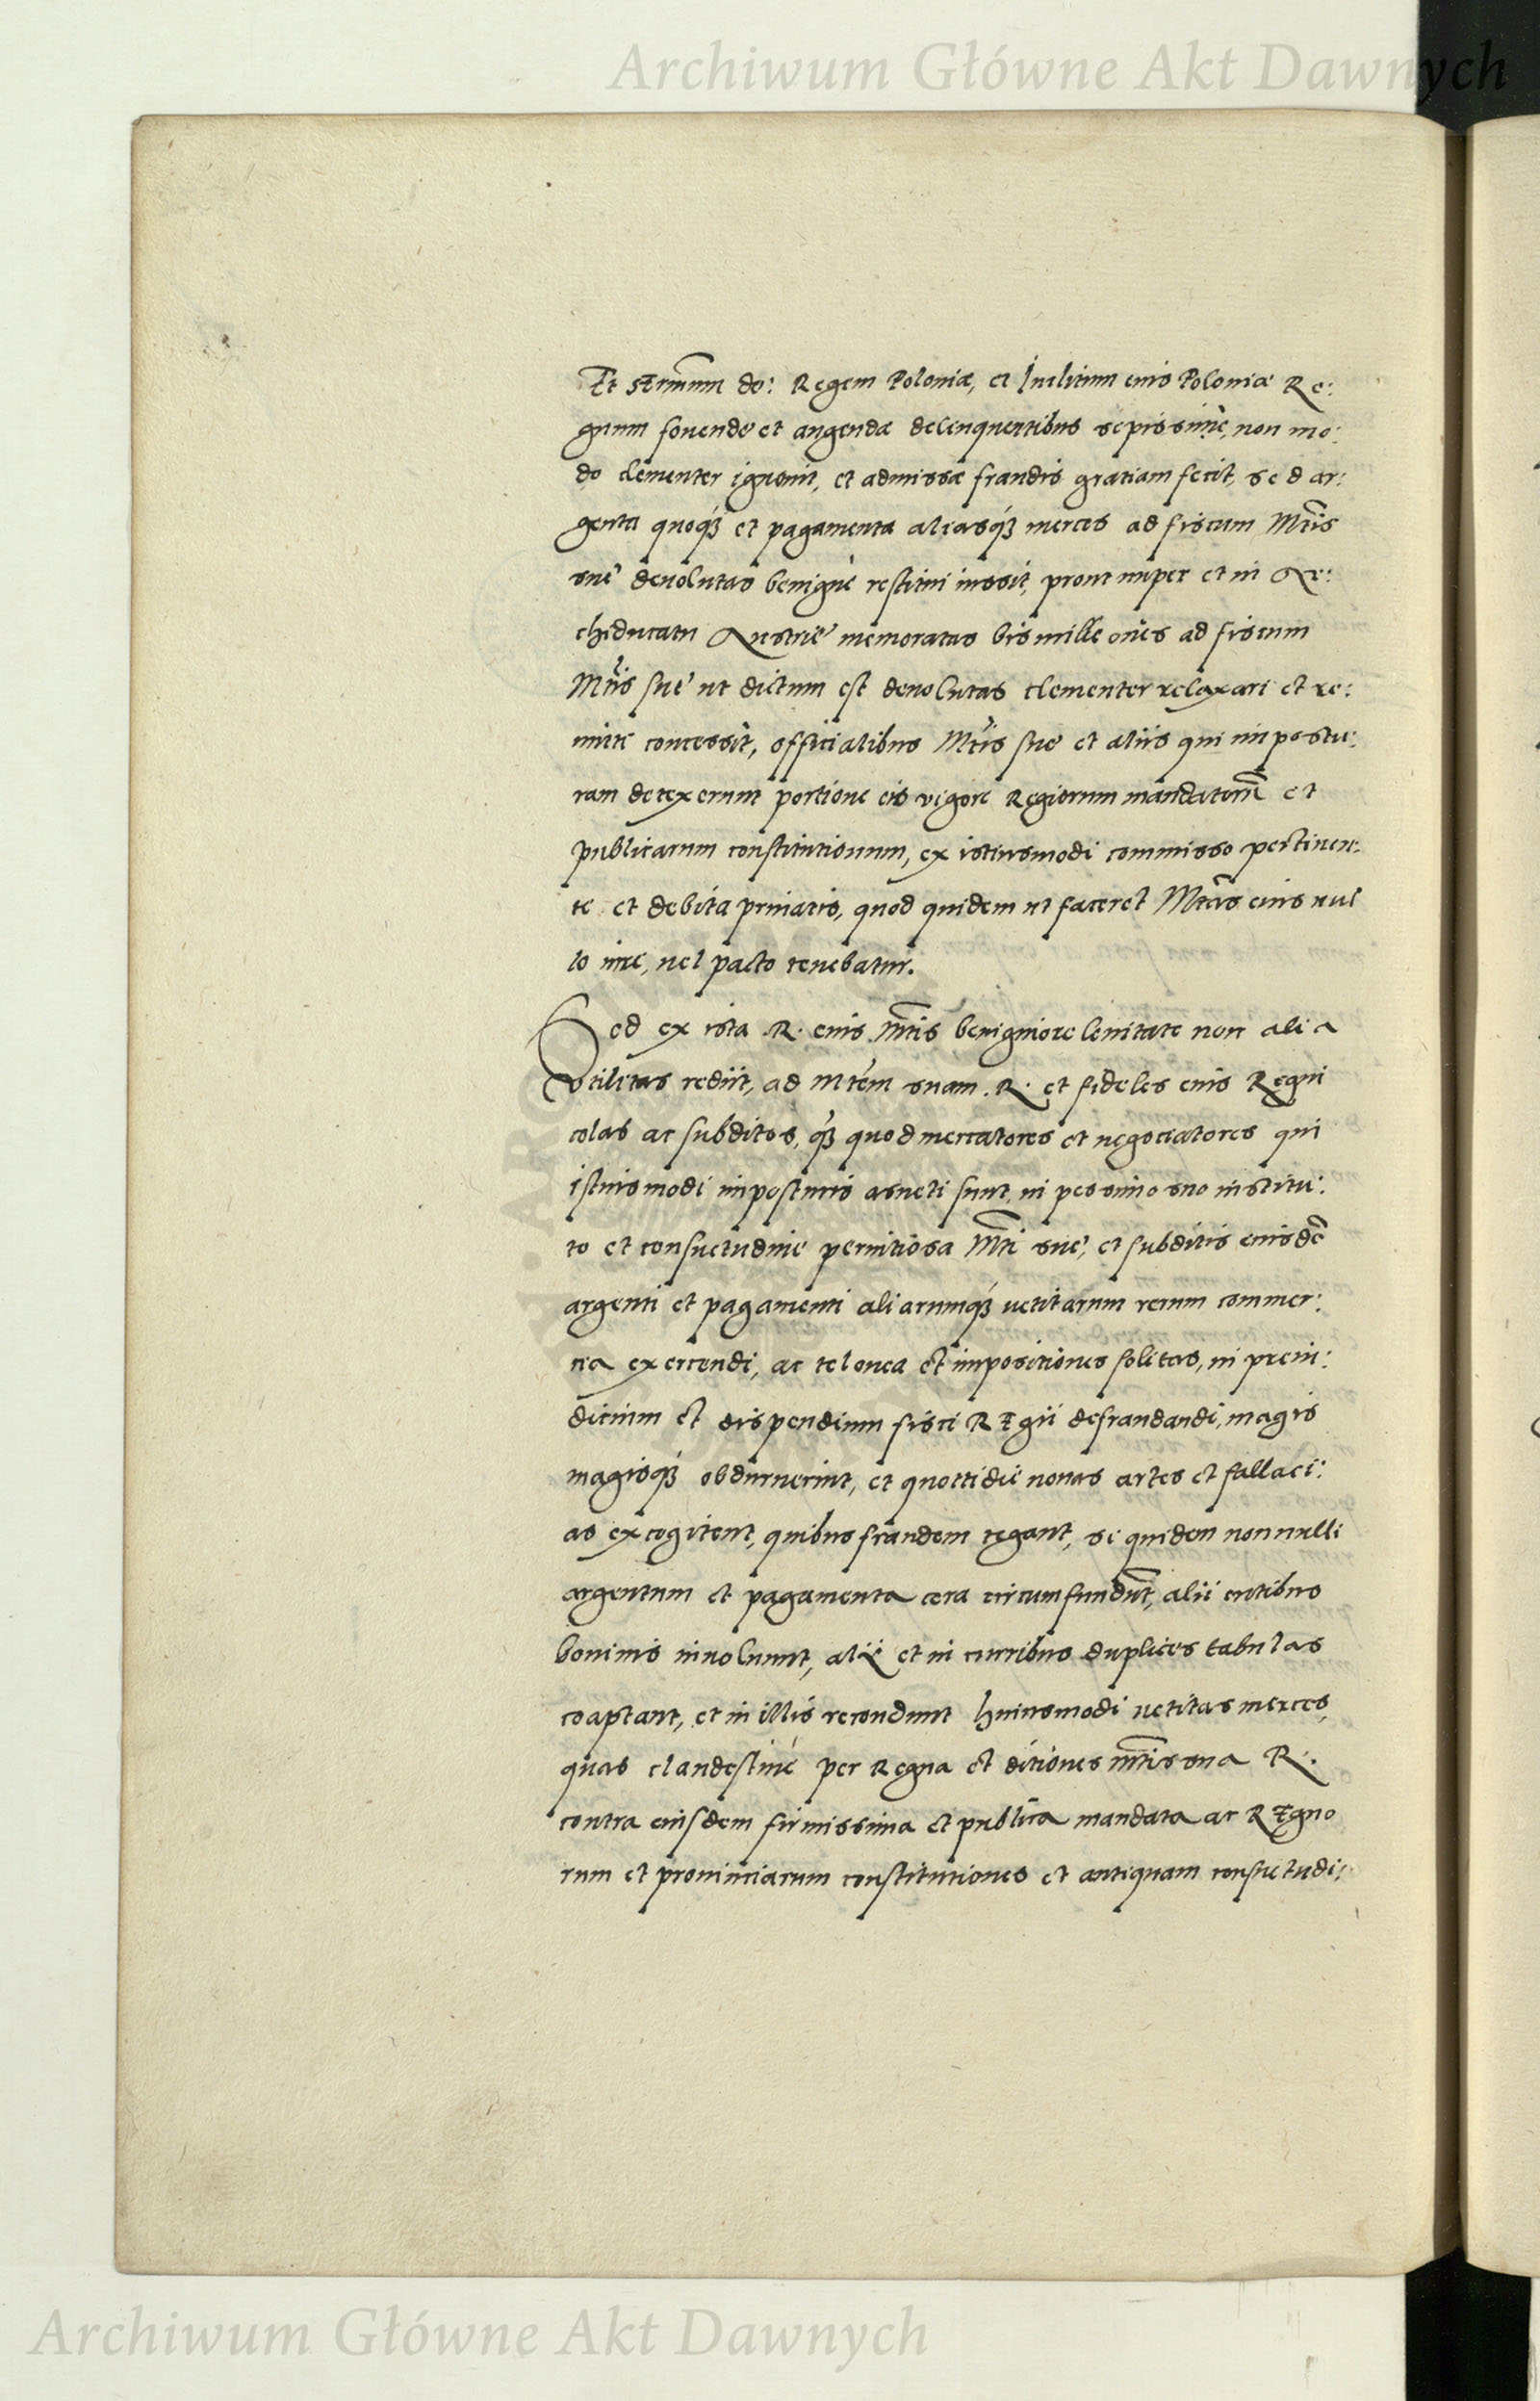 Archiwum Główne Akt Dawnych
Et sermum do: Regem Poloniæ, et Inclitum eius Poloniæ Re:
gnum fouendę et augendæ delinquentibus sepissime, non mo:
do clementer ignouit, et admissæ fraudis gratiam fecit, sed ar:
genta quoqȝ et pagamenta aliasqȝ merces ad fiscum Mtis
suę deuolutas benignè restitui iussit, prout nuper et in Ar:
chiducatu Austrię memoratas bis mille oues ad fiscum
Mtis suę ut dictum est deuolutas clementer relaxari et re:
mitti concessit, officialibus Mtis suę et aliis qui impostu:
ram detexerunt portione eis vigore Regiorum mandatorũ et
publicarum constitutionum, ex istiusmodi commisso pertinen:
te et debita priuatis, quod quidem ut faceret Mtas eius nul
lo iure, uel pacto tenebatur.
Sed ex ista R. eius Mtis benigniore lenitate non alia
vtilitas rediit, ad Mtem suam R. et fideles eius Regni
colas ac subditos, qȝ quod mercatores et negociatores qui
istiusmodi imposturis asueti sunt, in pessimo suo institu:
to et consuetudine pernitiosa Mti suę, et subditis eiusdẽ
argenti et pagamenti aliarumqȝ uetitarum rerum commer:
cia exercendi, ac telonea et impositiones solitas, in preiu:
dicium et dispendium fisci Regii defraudandi, magis
magisqȝ obduruerint, et quottidie nouas artes et fallaci:
as excogitent, quibus fraudem tegant, si quidem nonnulli
argentum et pagamenta cera circumfundũt, alii cutibus
bouinis inuoluunt, alij et in curribus duplices tabulas
coaptant, et in illis recondunt huiusmodi uetitas merces,
quas clandestinè per Regna et ditiones Mtis sua R.
contra eiusdem firmissima et publica mandata ac Regno
rum et prouinciarum constitutiones et antiquam consuetudi:
Archiwum Główne Akt Dawnych